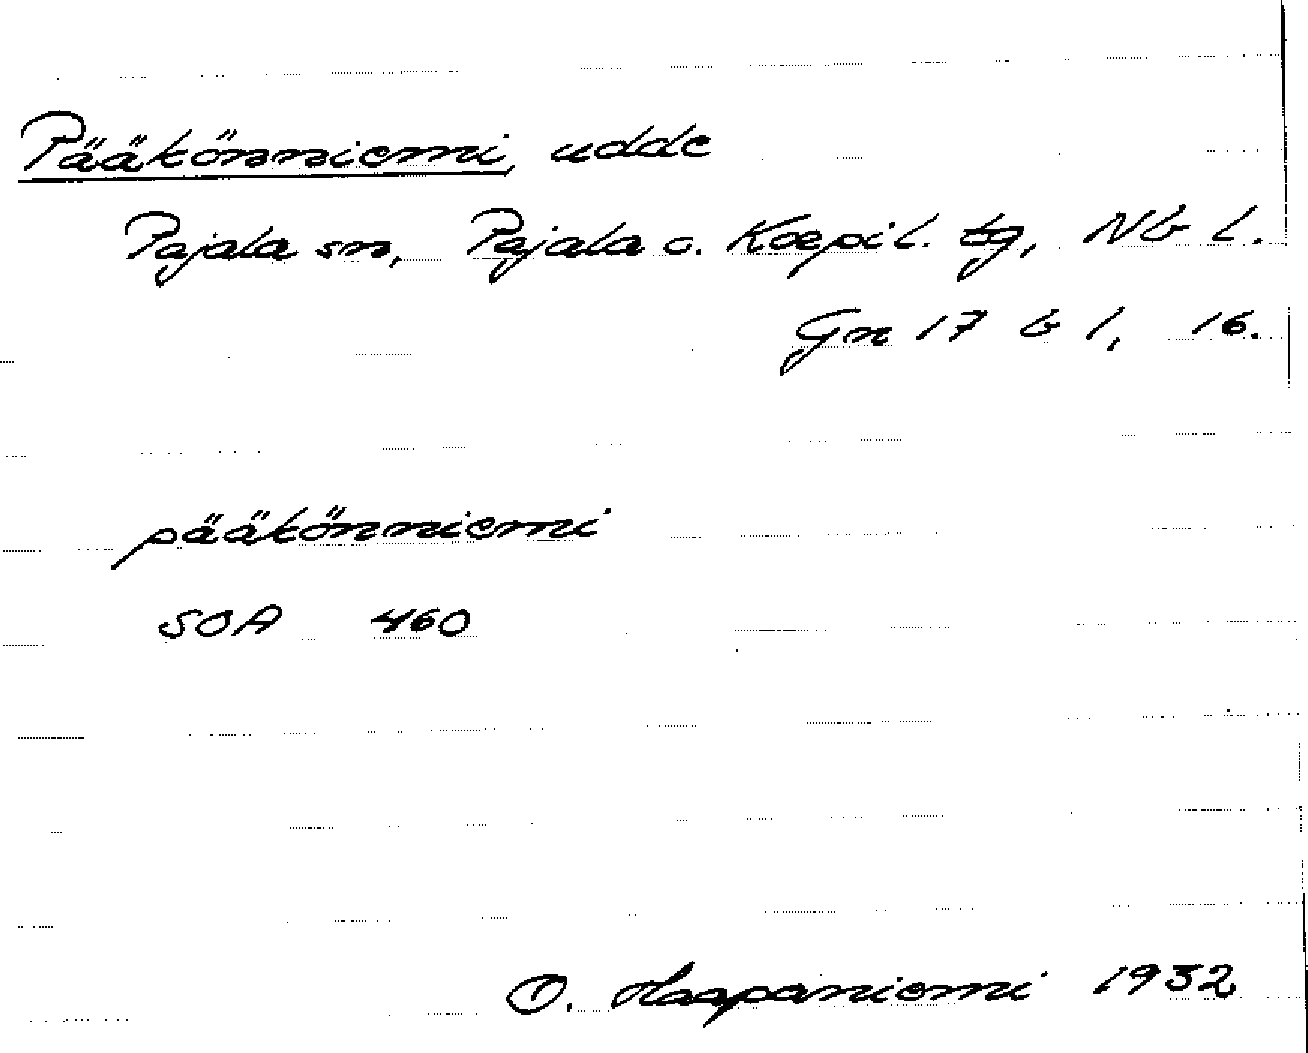 Pääkönniemi, udde
Pajala sn, Pajala o. Korpil. tg, Nb l.
Gn 17 b 1, 16.
pääkönniemi
SOA 460
O. Haapaniemi 1932